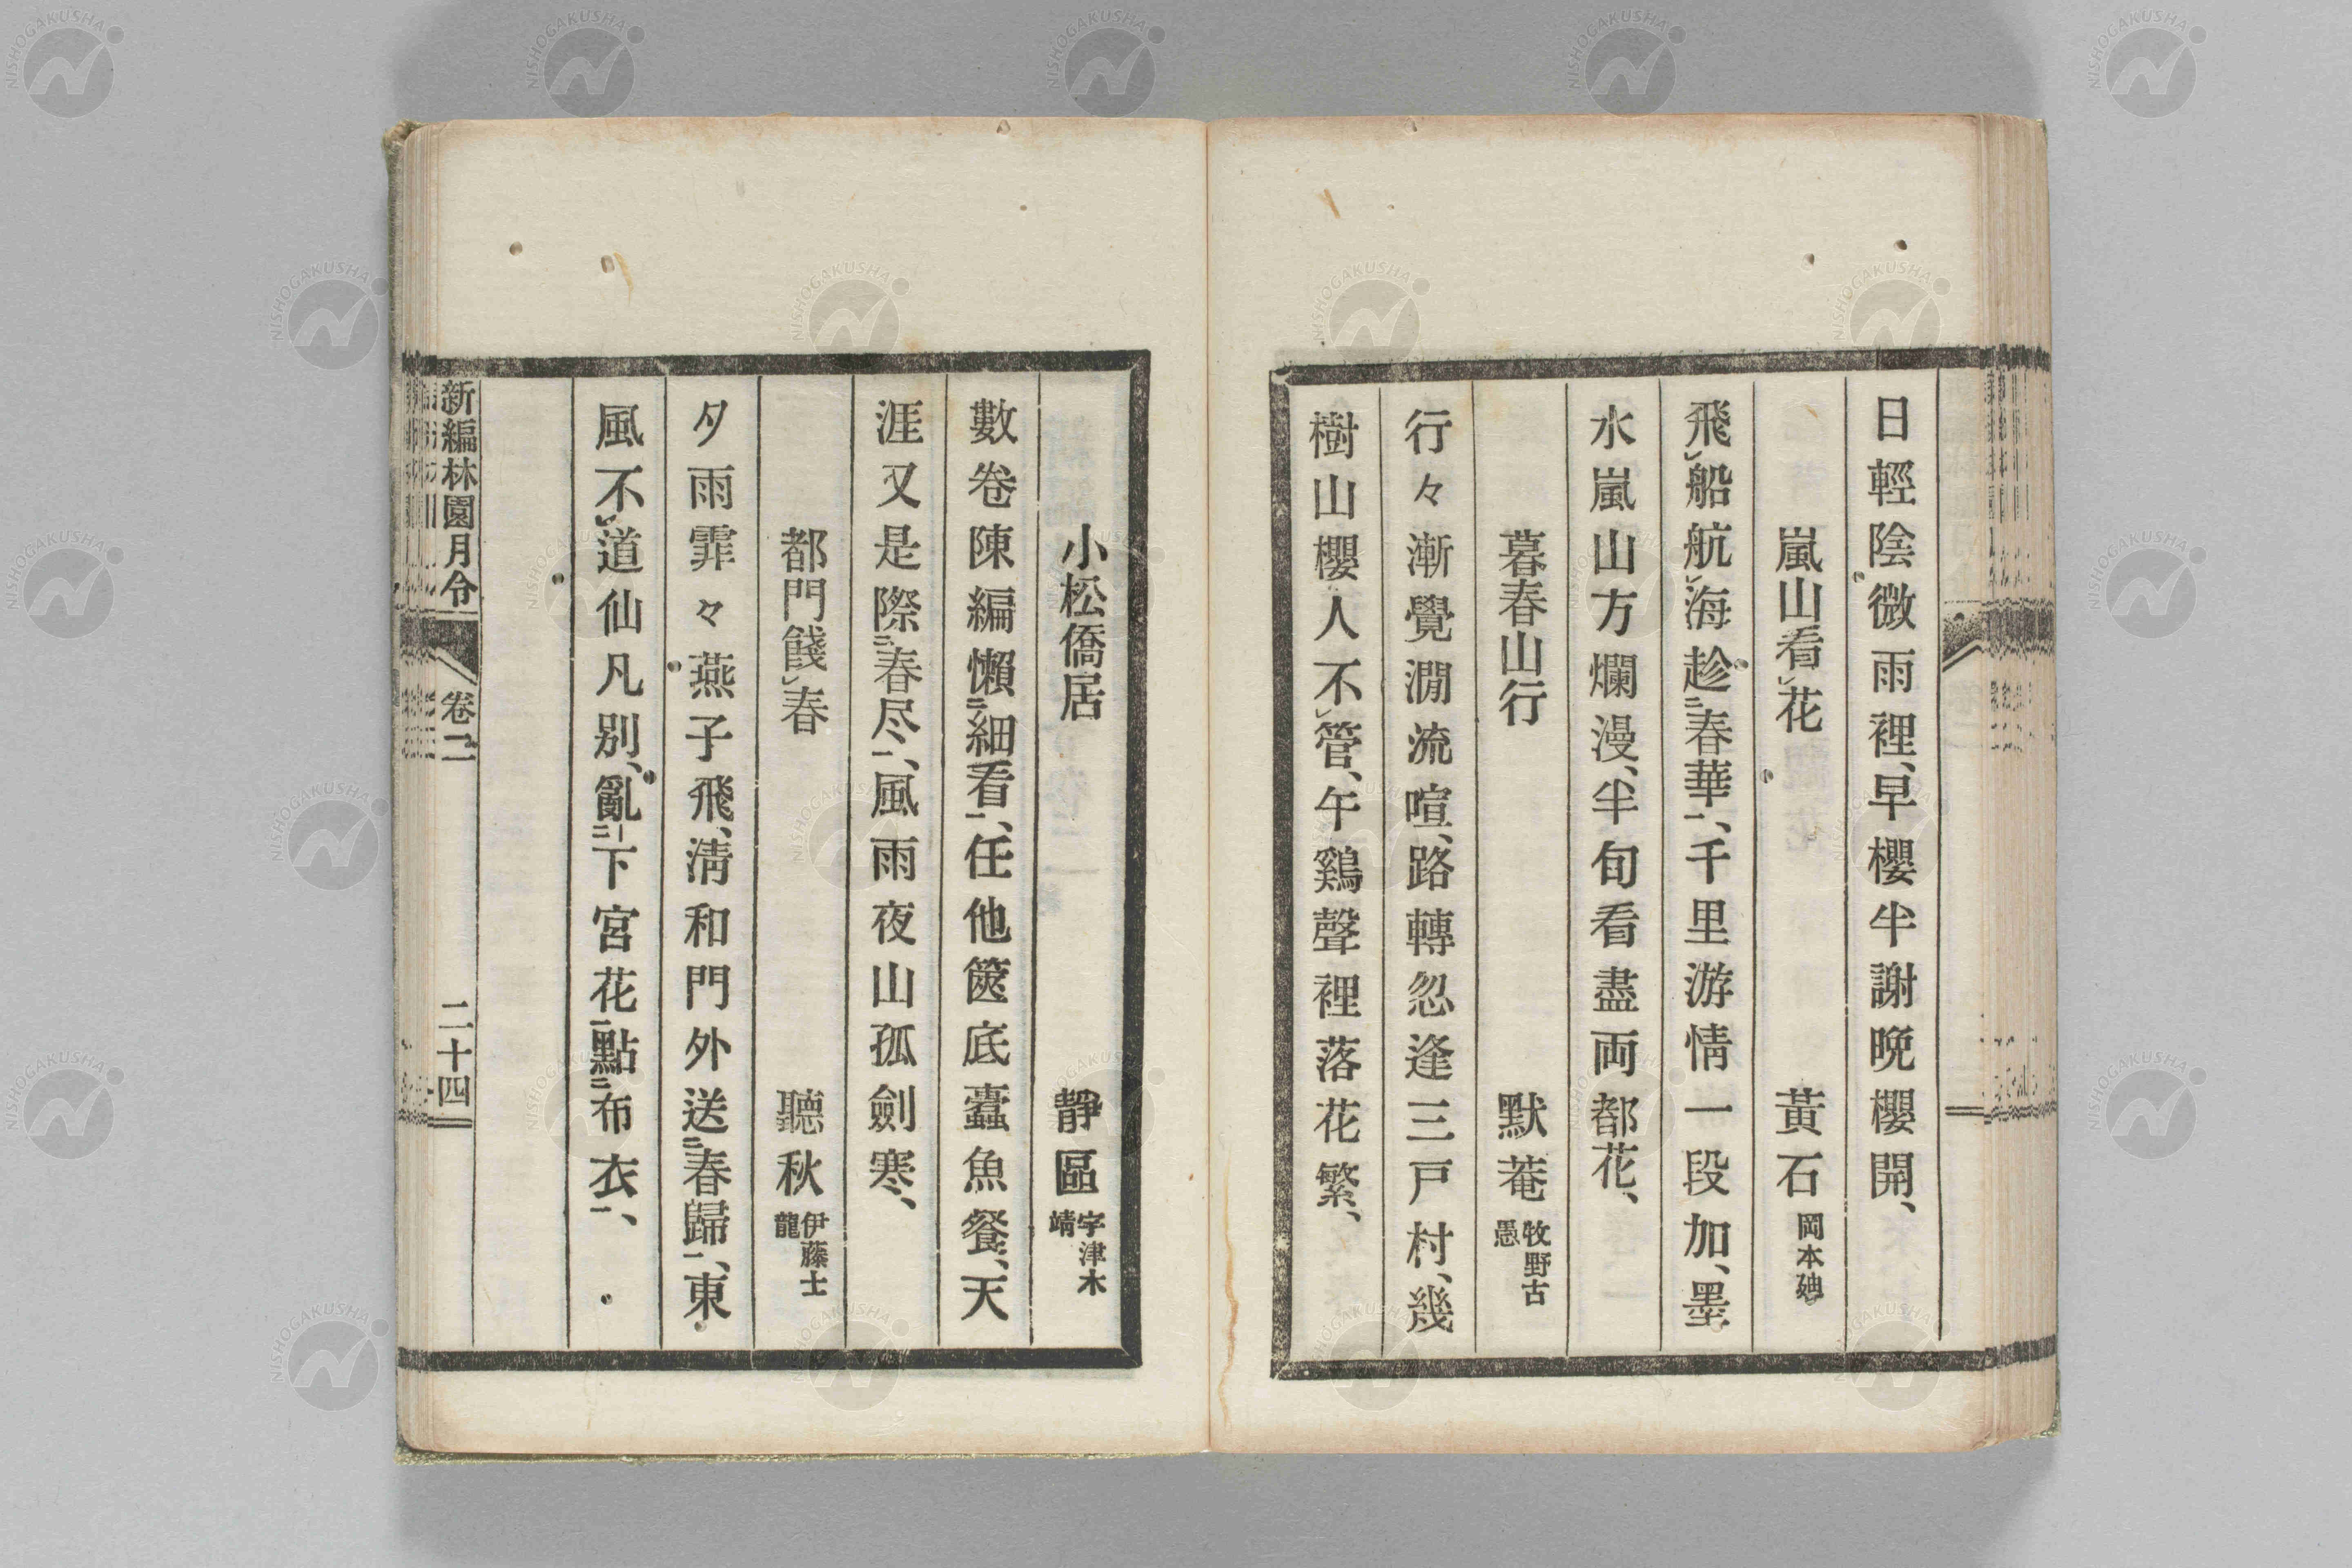 日輕陰微雨裡、早櫻半謝晩櫻開、
嵐山看レ花　黃石 岡本
飛レ船航レ海趁二春華一、千里游情一段加、墨
水嵐山方爛漫、半旬看盡両都花、
暮春山行　默菴 牧野古愚
行々漸覺澗流喧、路轉忽逢三戸村、幾
樹山櫻人不レ管、午鷄聲裡落花繁、
小松僑居　靜區 宇津木靖
數卷陳編懶二細看一、任他篋底蠹魚餐、天
涯又是際二春尽一、風雨夜山孤劍寒、
都門餞レ春　聽秋 伊藤士龍
夕雨霏々燕子飛、淸和門外送二春歸一、東
風不レ道仙凡別、亂下宮花點二布衣一、
新編林園月令　卷二　二十四